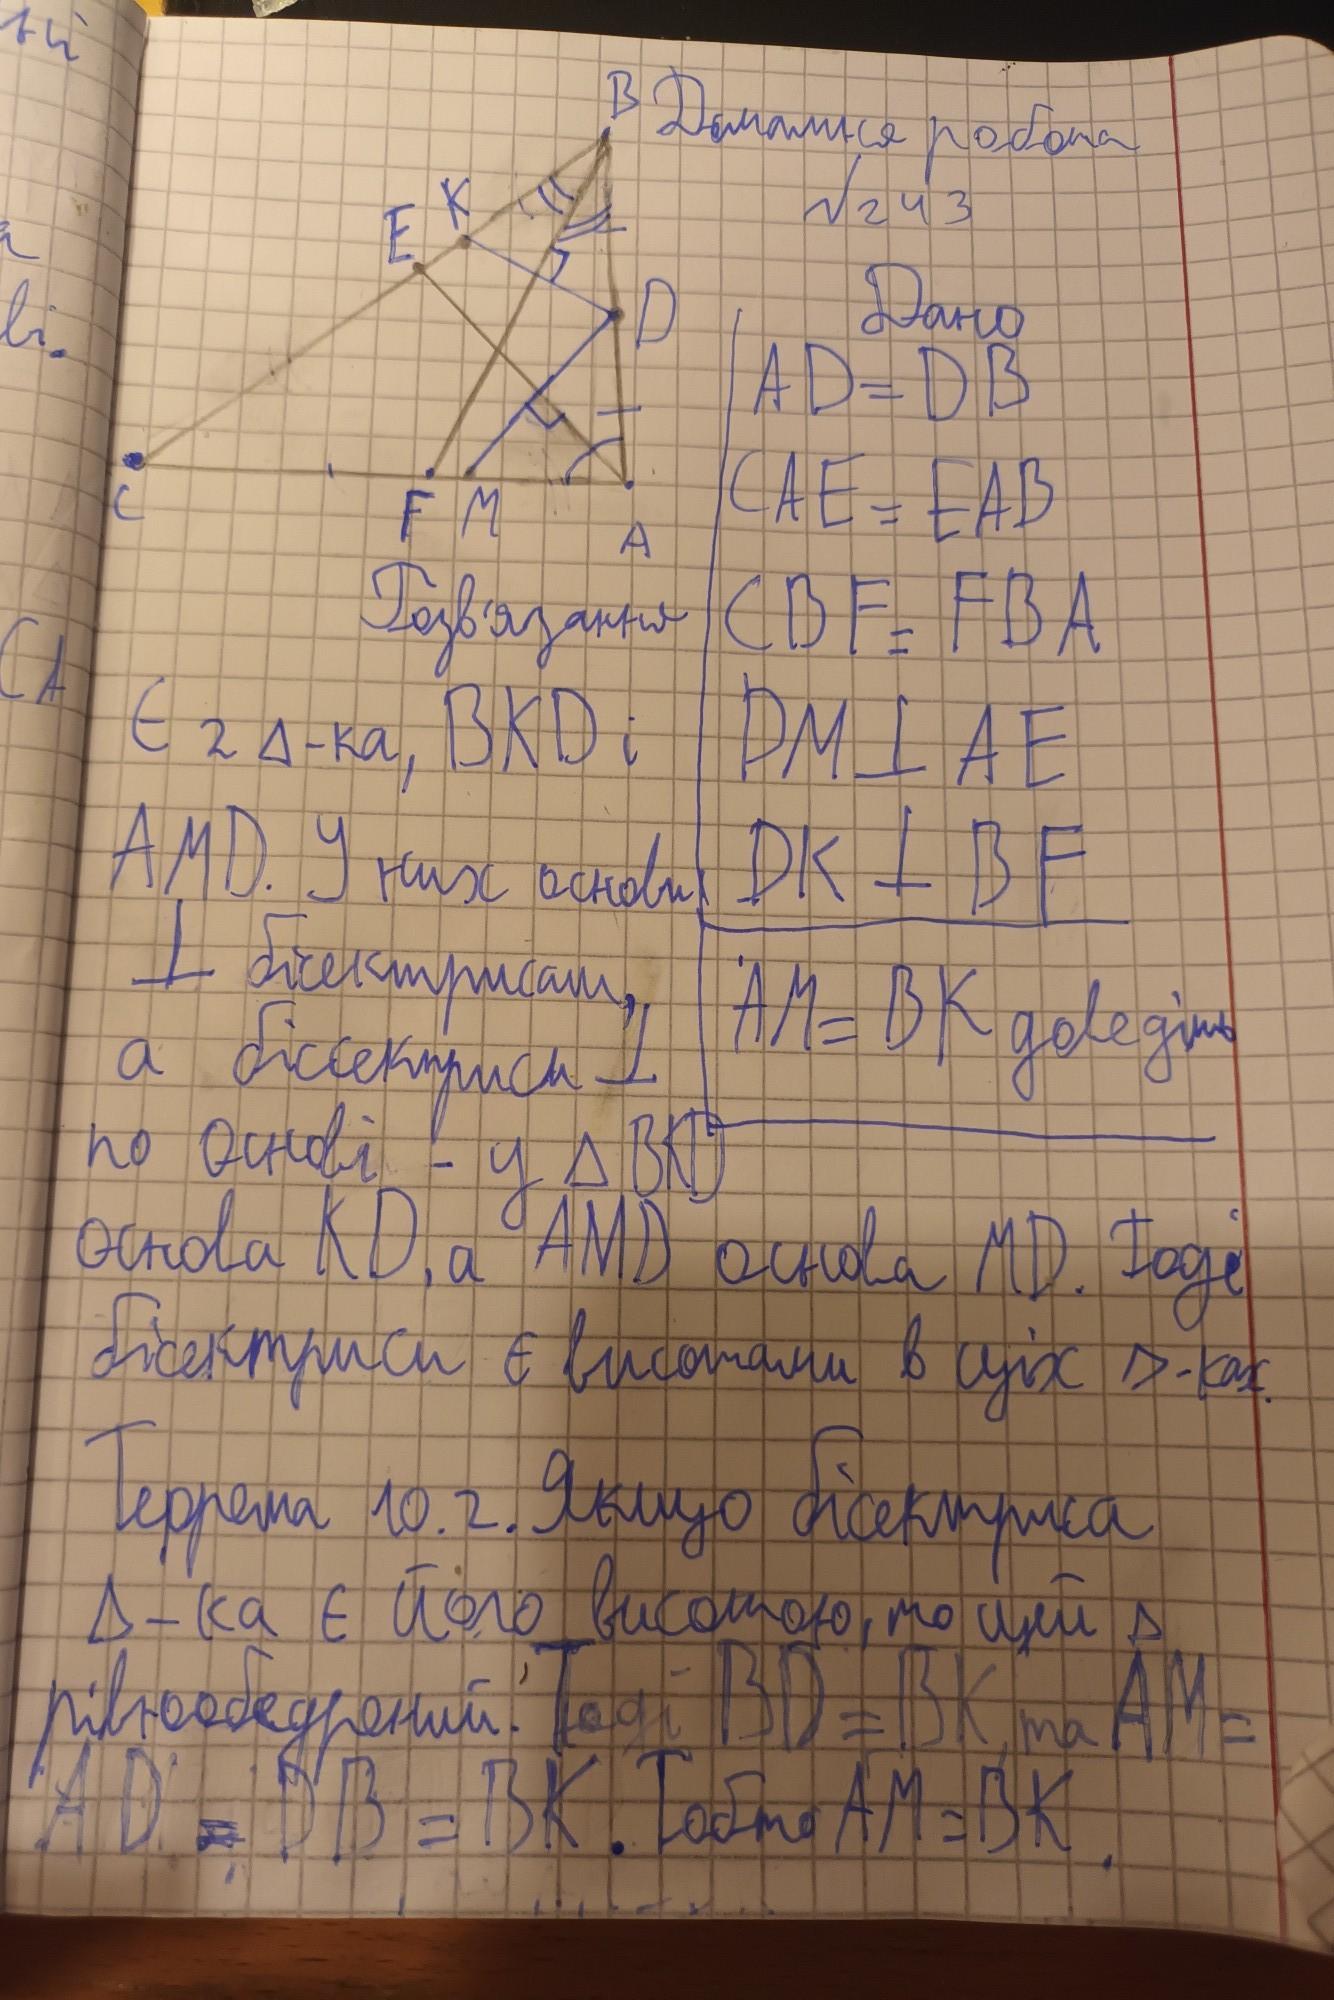 ні
а
ві.
СА
B Домашня робота
№243
K
E
D
C
F M
A
Дано
AD = DB
CAE = EAB
CBF = FBA
DM ⊥ AE
DK ⊥ BF
AM = BK доведіть
Розв'язання
Є 2 Δ-ка, BKD і
AMD. У них основи
⊥ бісектрисам,
а біссектриси ⊥
по основі - у Δ BKD
основа KD, а AMD основа MD. Тоді
бісектриси є висотами в цих Δ-ках.
Теорема 10.2. Якщо бісектриса
Δ-ка є його висотою, то цей Δ
рівнобедрений. Тоді BD = BK, та AM =
AD = DB = BK. Тобто AM = BK.